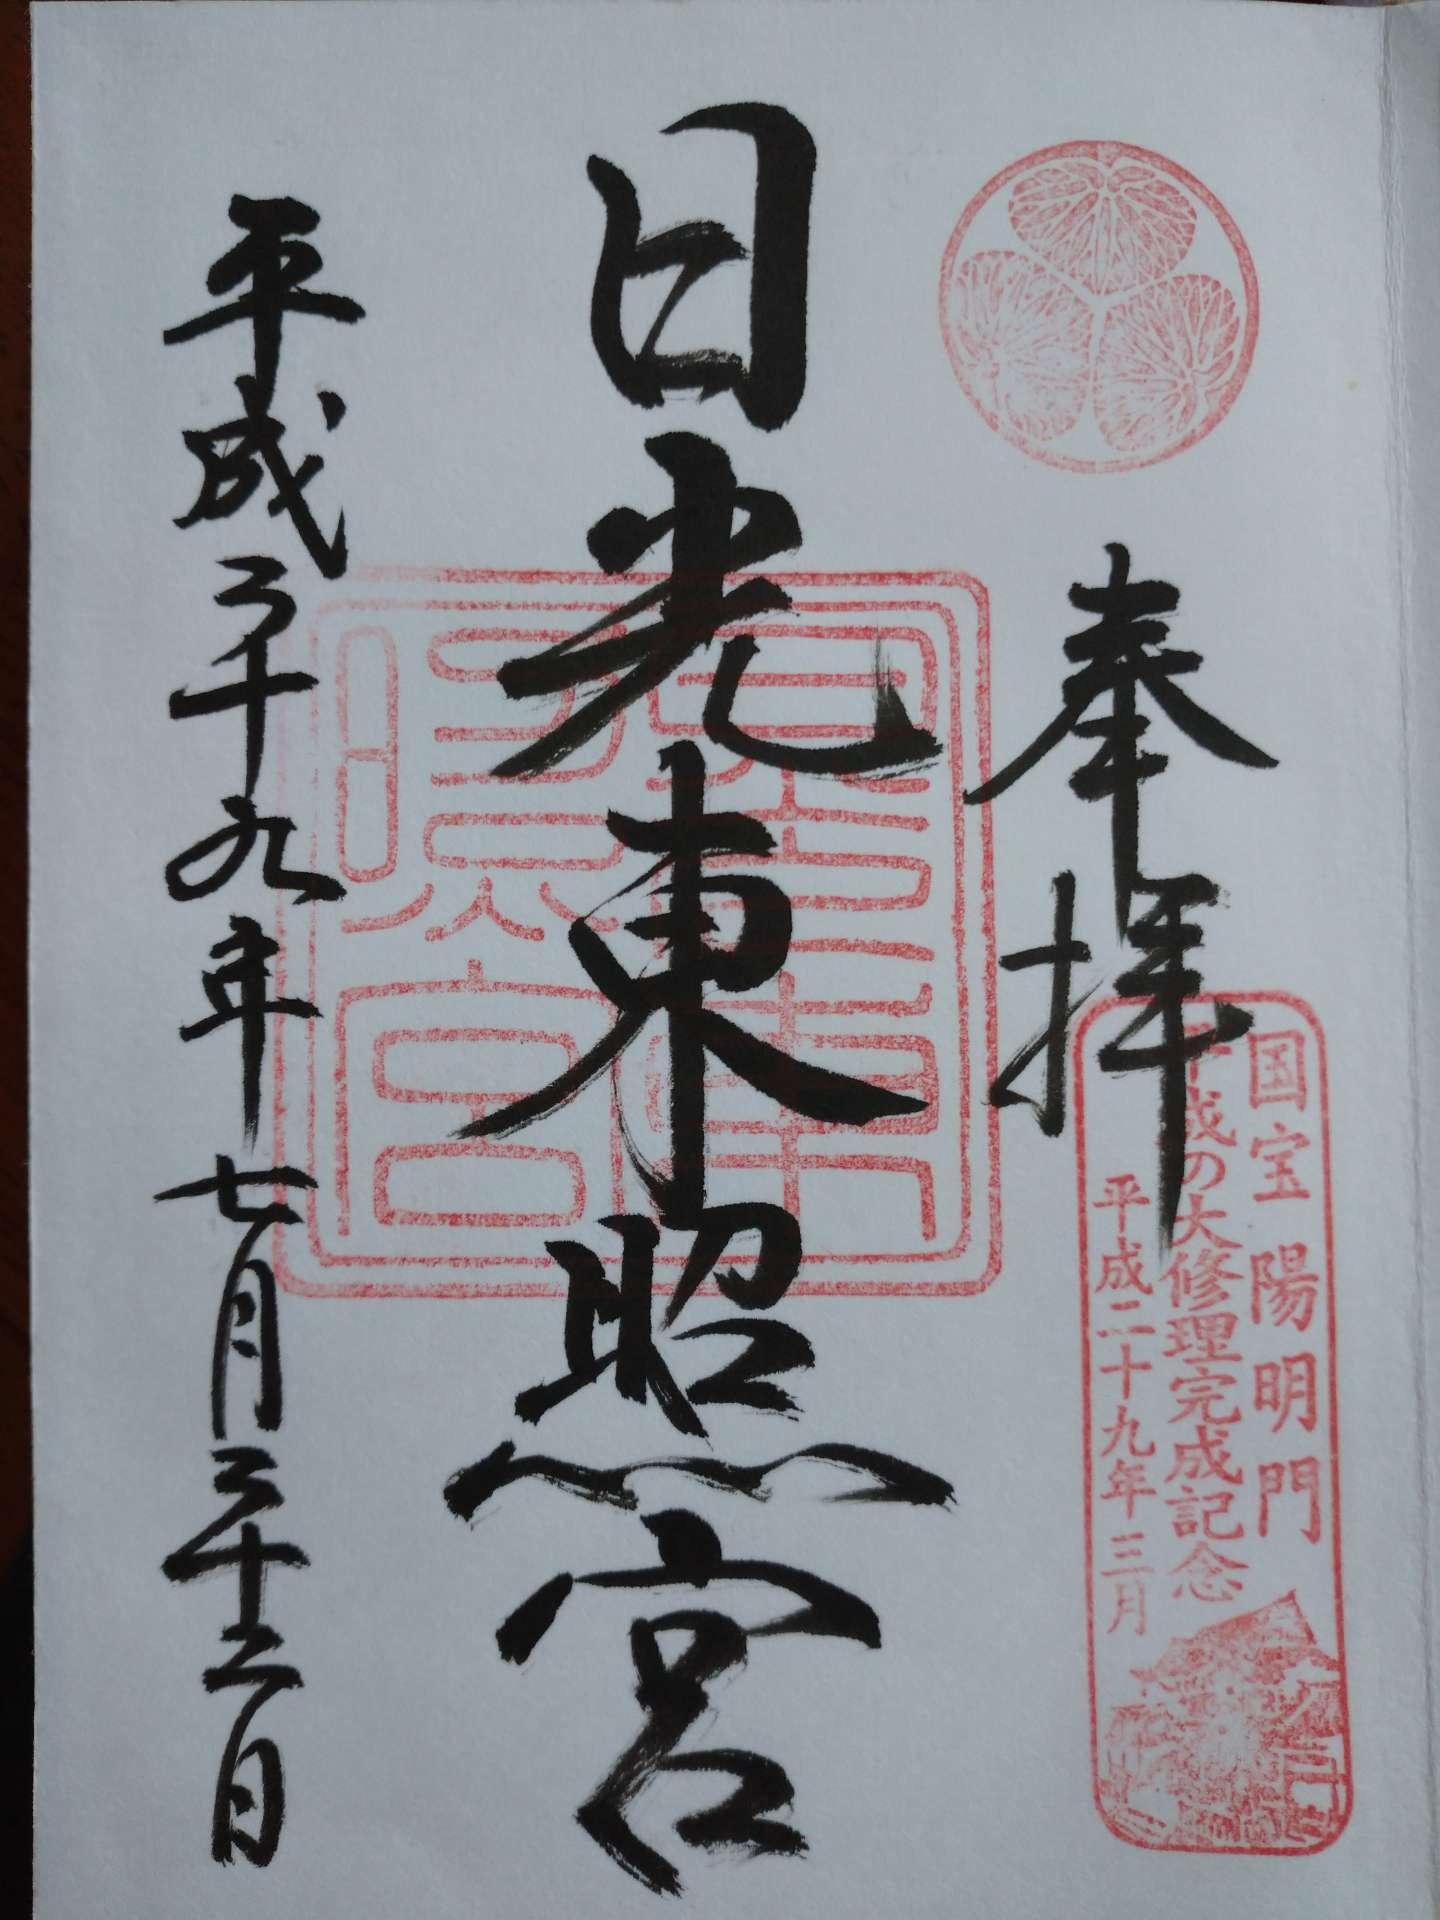 奉拝
国宝 陽明門
平成の大修理完成記念
平成二十九年三月
日光東照宮
平成二十九年七月二十二日